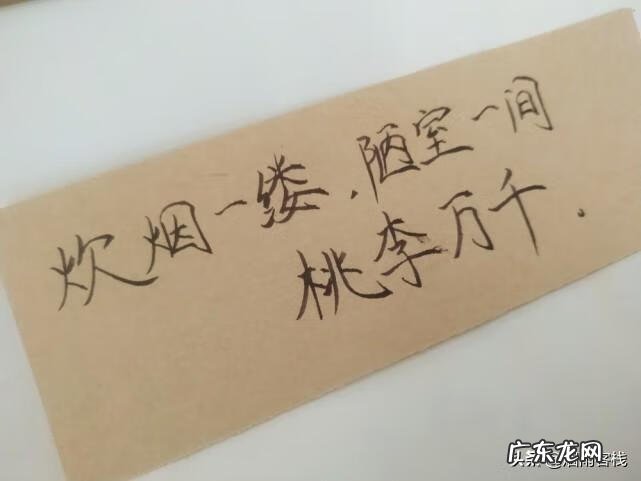 炊烟一缕，陋室一间
桃李万千.
广东龙网